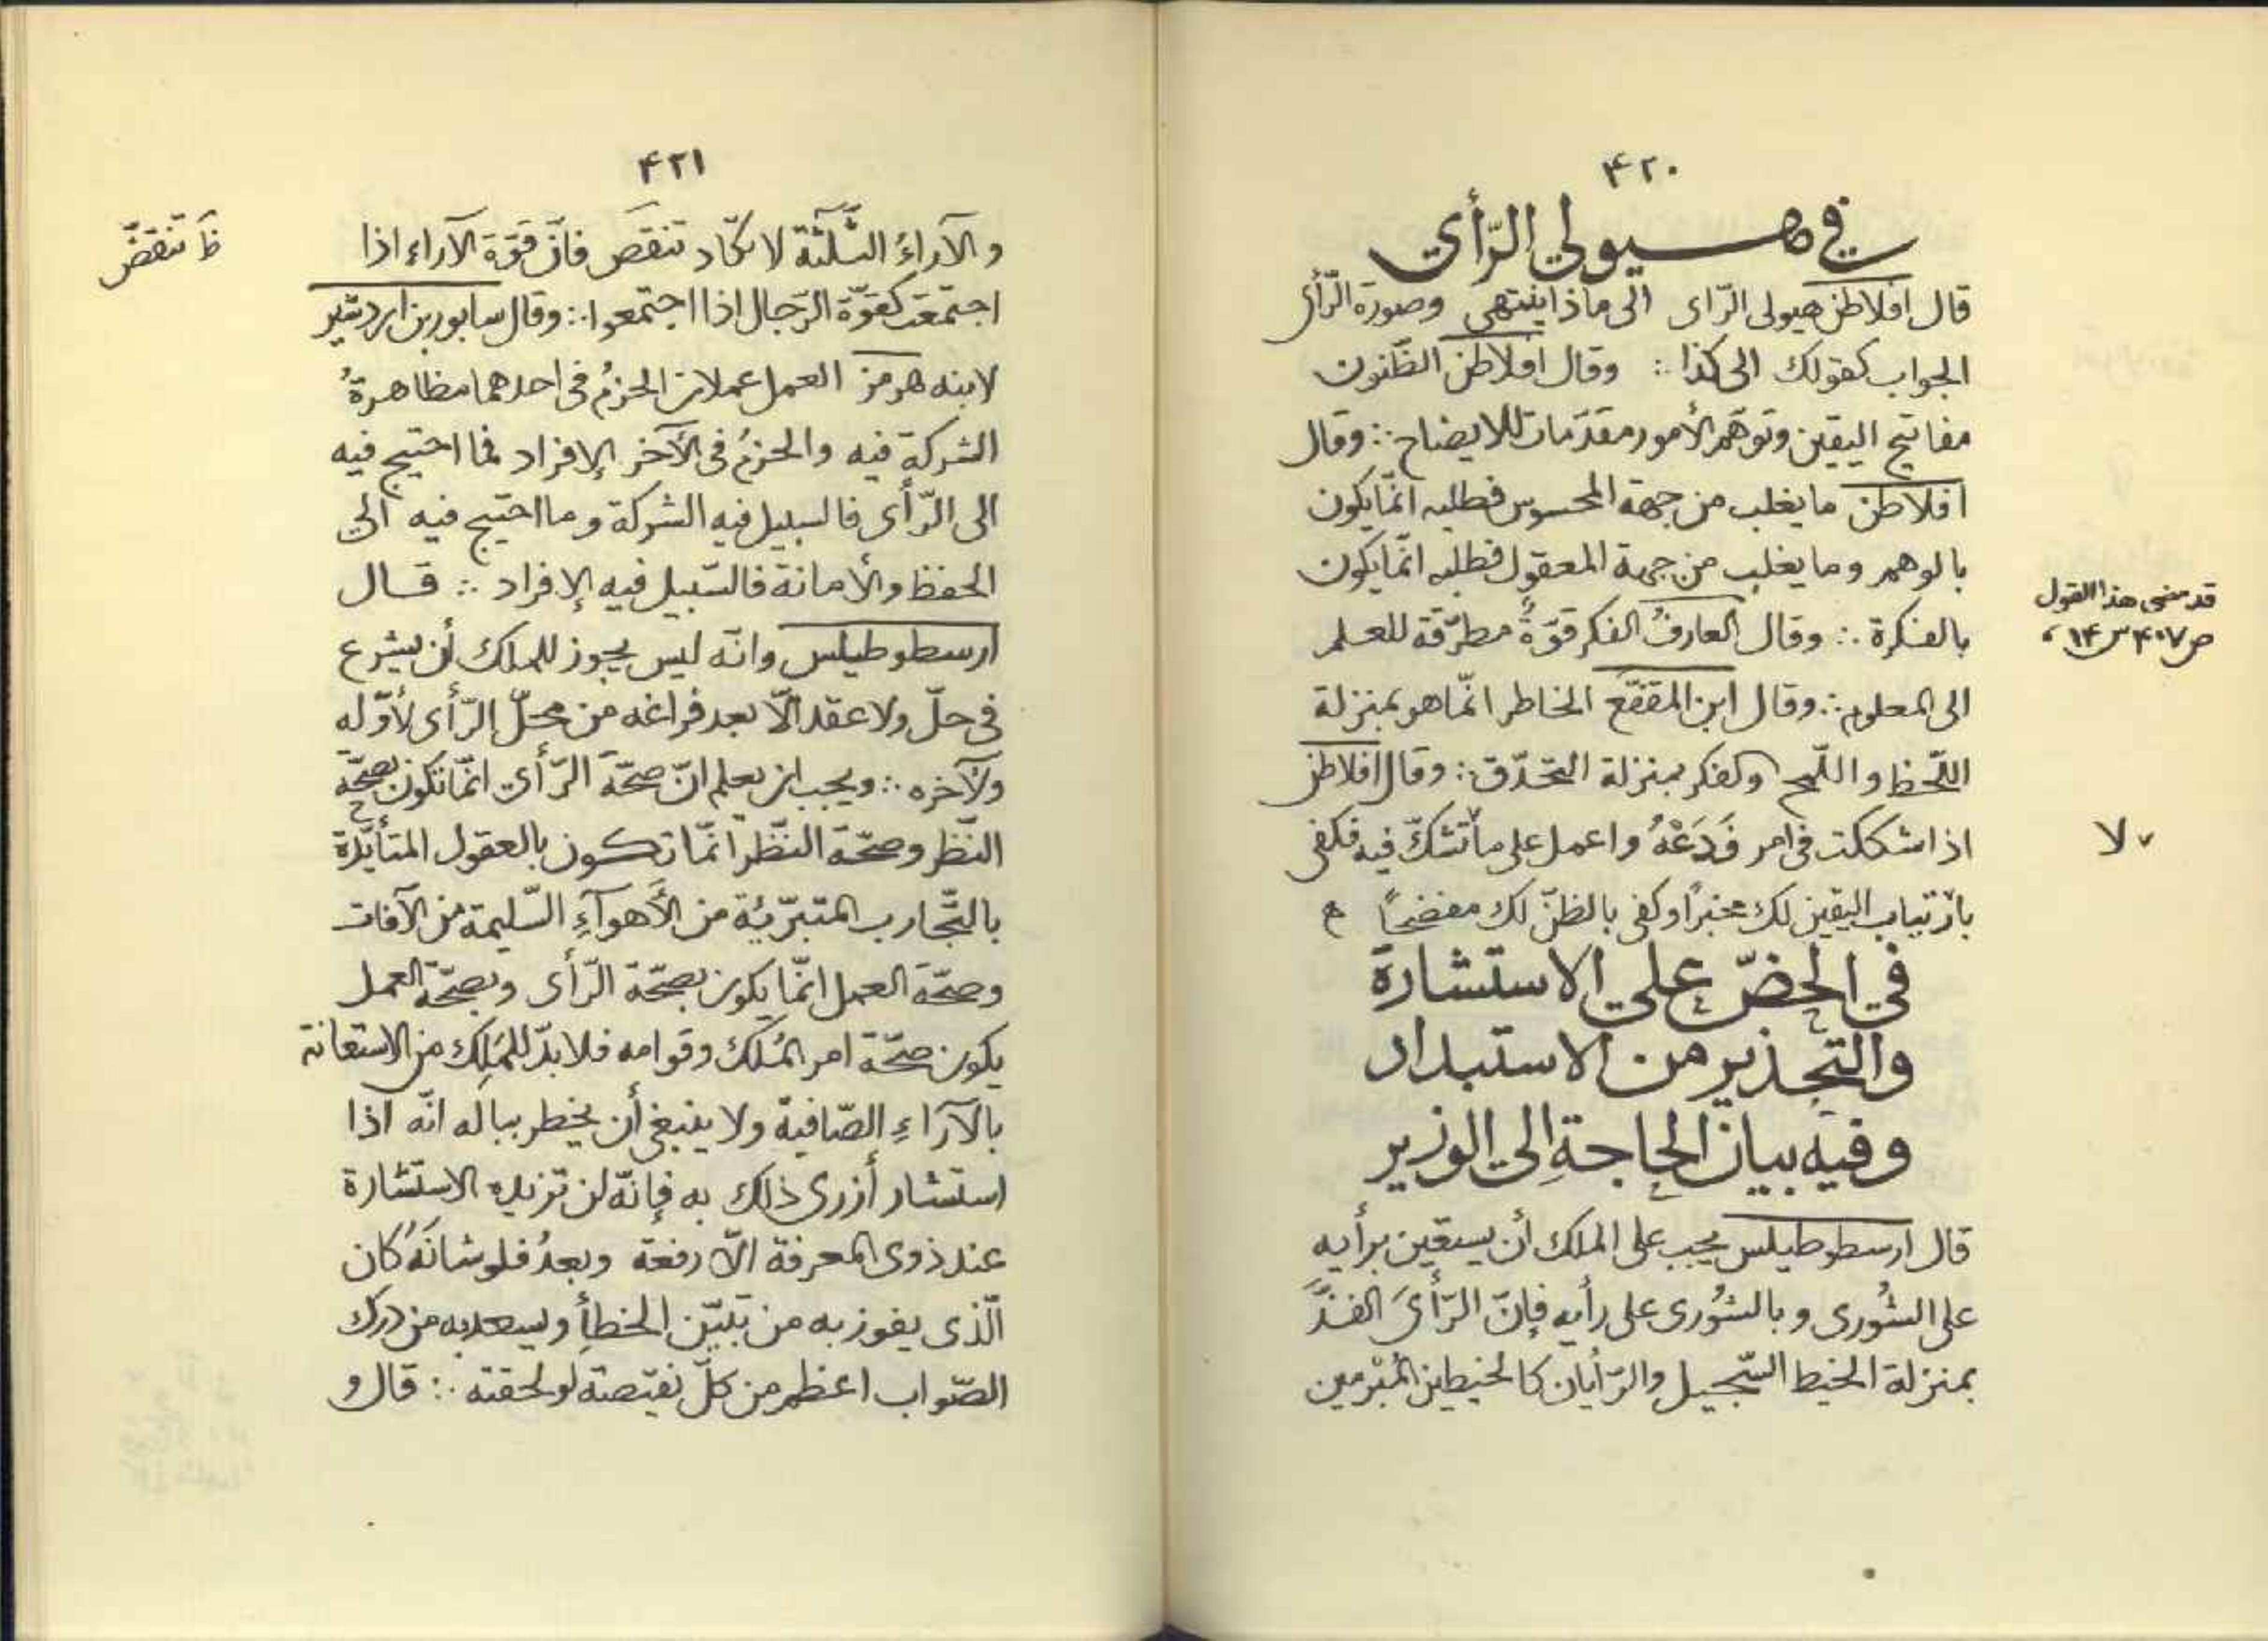 ۴۲۰
في هيولي الرّأي
قال افلاطن هيولى الرّاى الى ماذا ينتهى وصورة الرّأى
الجواب كقولك الى كذا ∴ وقال افلاطن الظّنون
مفاتيح اليقين وتوهّم الأمور مقدّمات للايضاح ∴ وقال
افلاطن ما يغلب من جهة المحسوس فطلبه انّما يكون
بالوهم وما يغلب من جهة المعقول فطلبه انّما يكون
بالفكرة ∴ وقال العارفُ الفكر قوّةٌ مطرّقة للعلم
قد مضى هذا القول
ص ۴۰۷ س ۱۴
الى المعلوم ∴ وقال ابن المقفّع الخاطر انّما هو بمنزلة
اللّحظ و اللّمح والفكر بمنزلة التحدّق ∴ وقال افلاطن
اذا شككت فى امر فَدَعْهُ واعمل على ما ٧تشكّ فيه فكفى
٧ لا
بارتياب اليقين لك مخبرًا وكفى بالظنّ لك مفضحاً
في الحضّ علي الاستشارة
والتحذير من الاستبداد
وفيه بيان الحاجة إلي الوزير
قال ارسطوطيلس يجب على الملك أن يستعين برأيه
على الشُورى و بالشُورى على رأيه فإنّ الرّأىَ الفذَّ
بمنزلة الخيط السّحيل والرّأيان كالخيطين المُبْرمين
۴۲۱
و الآراءُ الثّلثة لا تكاد تنقص فانّ قوّة الآراء اذا
ظ تنقضّ
اجتمعت كقوّة الرّجال اذا اجتمعوا ∴ وقال سابور بن اردشير
لابنه هرمز العمل عملان الحزمُ فى احدهما مظاهرةُ
الشركة فيه والحزمُ فى الآخر الإفراد فما احتيج فيه
الى الرّأى فالسبيل فيه الشركة و ما احتيج فيه الى
الحفظ والأمانة فالسّبيل فيه الإفراد ∴ قال
ارسطوطيلس وانّه ليس يجوز للملك أن يشرع
فى حلّ ولا عقد الاّ بعد فراغه من محلّ الرّأى لأوّله
ولآخره ∴ ويجب ان يعلم انّ صحّة الرّأى انّما تكون بصحّة
النّظر وصحّة النّظر انّما تكون بالعقول المتأيّدة
بالتّجارب المتبرّئة من الأهوآءِ السّليمة من الآفات
وصحّة العمل انّما يكون بصحّة الرّأى وبصحّة العمل
يكون صحّة امر المُلك وقوامه فلا بدّ للمَلِك من الاستعانة
بالآراءِ الصّافية ولا ينبغى أن يخطر بباله انّه اذا
استشار أزرى ذلك به فإنّه لن تزيده الاستشارة
عند ذوى المعرفة الاّ رفعة وبعدُ فلو شانَهُ كان
الّذى يفوز به من تبيّن الخطأِ ويسعد به من درك
الصّواب اعظم من كلّ نقيصة لو لحقته ∴ قال و